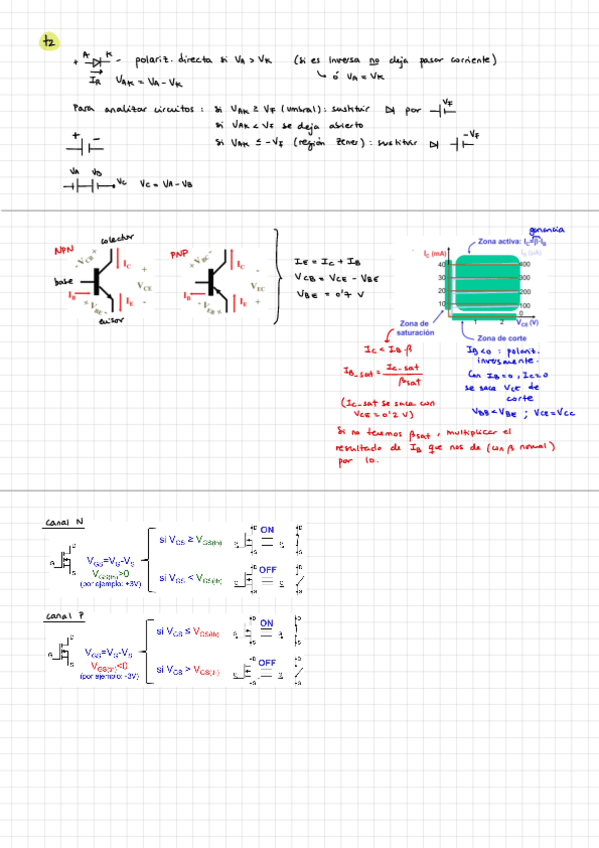 t2
+ A K - polariz. directa si VA > VK (si es inversa no deja pasar corriente)
IR VAK = VA - VK ó VA = VK
Para analizar circuitos : si VAK ≥ VF (umbral) : sustituir por VF
si VAK < VF se deja abierto
+ -
si VAK ≤ -VF (región zener) : sustituir -VF
VA VB VC VC = VA - VB
NPN colector
base
emisor
IC
IB
IE
VCE
PNP
IC
IB
IE
VEC
IE = IC + IB
VCB = VCE - VBE
VBE = 0'7 V
ganancia
Zona activa: IC=β·IB
IC (mA)
40 400
30 300
20 200
10 100
0
1 2 VCE (V)
Zona de
saturación
Zona de corte
IC < IB β
IB_sat = IC_sat / βsat
(IC_sat se saca con
VCE = 0'2 V)
IB<0 : polariz.
inversamente.
Con IB=0, IC=0
se saca VCE de
corte
VBB < VBE ; VCE=VCC
Si no tenemos βsat, multiplicar el
resultado de IB que nos de (con β normal)
por 10.
Canal N
VGS=VG-VS
VGS(th)>0
(por ejemplo: +3V)
si VGS ≥ VGS(th)
ON
si VGS < VGS(th)
OFF
Canal P
VGS=VG-VS
VGS(th)<0
(por ejemplo: -3V)
si VGS ≤ VGS(th)
ON
si VGS > VGS(th)
OFF